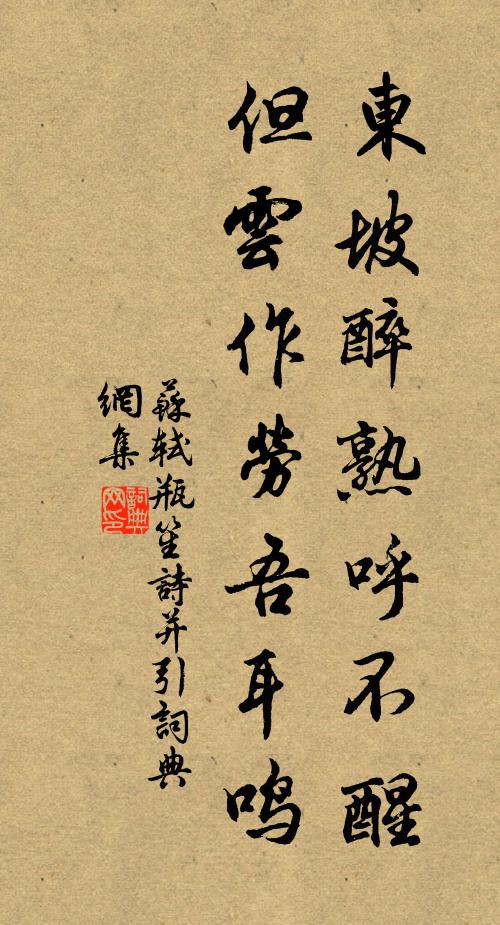 東坡醉熟呼不醒
但雲作勞吾耳鳴
蘇軾瓶笙詩并引詞典
網集
詞典
网印